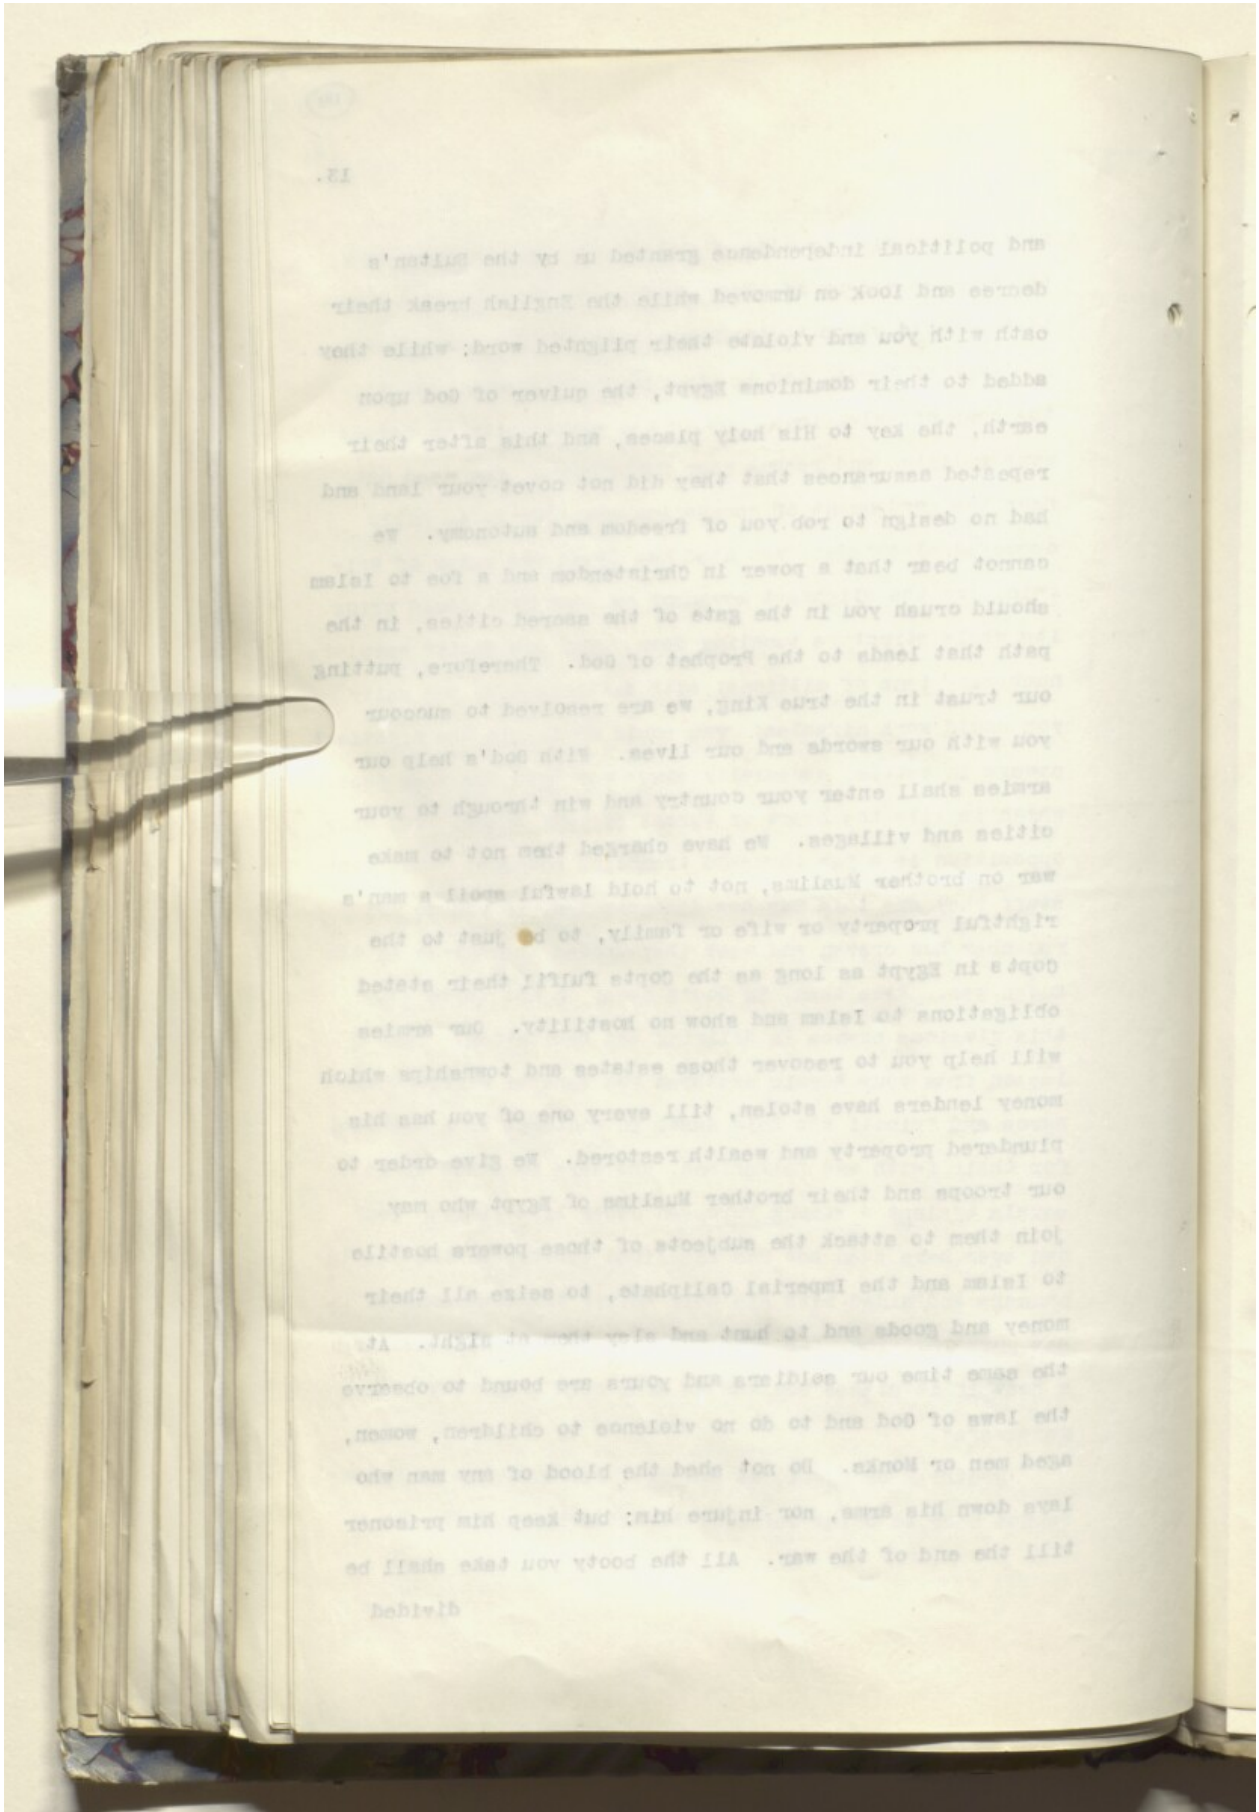 13.
and political independence granted us by the Sultan's
decree and look on unmoved while the English break their
oath with you and violate their plighted word; while they
added to their dominions Egypt, the quiver of God upon
earth, the key to His holy places, and this after their
repeated assurances that they did not covet your land and
had no design to rob you of freedom and autonomy. We
cannot bear that a power in Christendom and a foe to Islam
should crush you in the gate of the sacred cities, in the
path that leads to the Prophet of God. Therefore, putting
our trust in the true King, we are resolved to succour
you with our swords and our lives. With God's help our
armies shall enter your country and win through to your
cities and villages. We have charged them not to make
war on brother Muslims, not to hold lawful spoil a man's
rightful property or wife or family, to be just to the
Copts in Egypt as long as the Copts fulfil their stated
obligations to Islam and show no hostility. Our armies
will help you to recover those estates and townships which
money lenders have stolen, till every one of you has his
plundered property and wealth restored. We give order to
our troops and their brother Muslims of Egypt who may
join them to attack the subjects of those powers hostile
to Islam and the Imperial Caliphate, to seize all their
money and goods and to hunt and slay them at sight. At
the same time our soldiers and yours are bound to observe
the laws of God and to do no violence to children, women,
aged men or Monks. Do not shed the blood of any man who
lays down his arms, nor injure him; but keep him prisoner
till the end of the war. All the booty you take shall be
divided